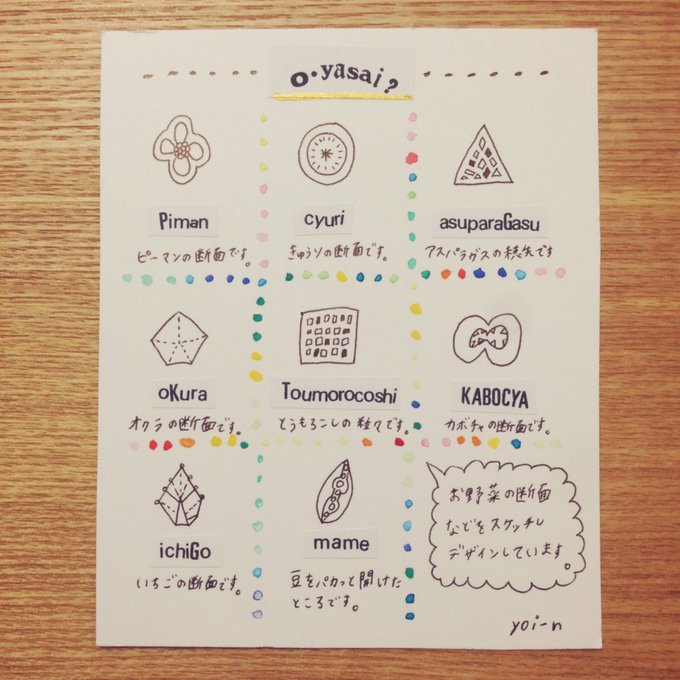 o・yasai?
Piman
ピーマンの断面です。
cyuri
きゅうりの断面です。
asuparaGasu
アスパラガスの穂先です
oKura
オクラの断面です。
Toumorocoshi
とうもろこしの粒々です。
KABOCYA
カボチャの断面です。
ichiGo
いちごの断面です。
mame
豆をパカっと開けた
ところです。
お野菜の断面
などをスケッチし
デザインしています。
yoi-n